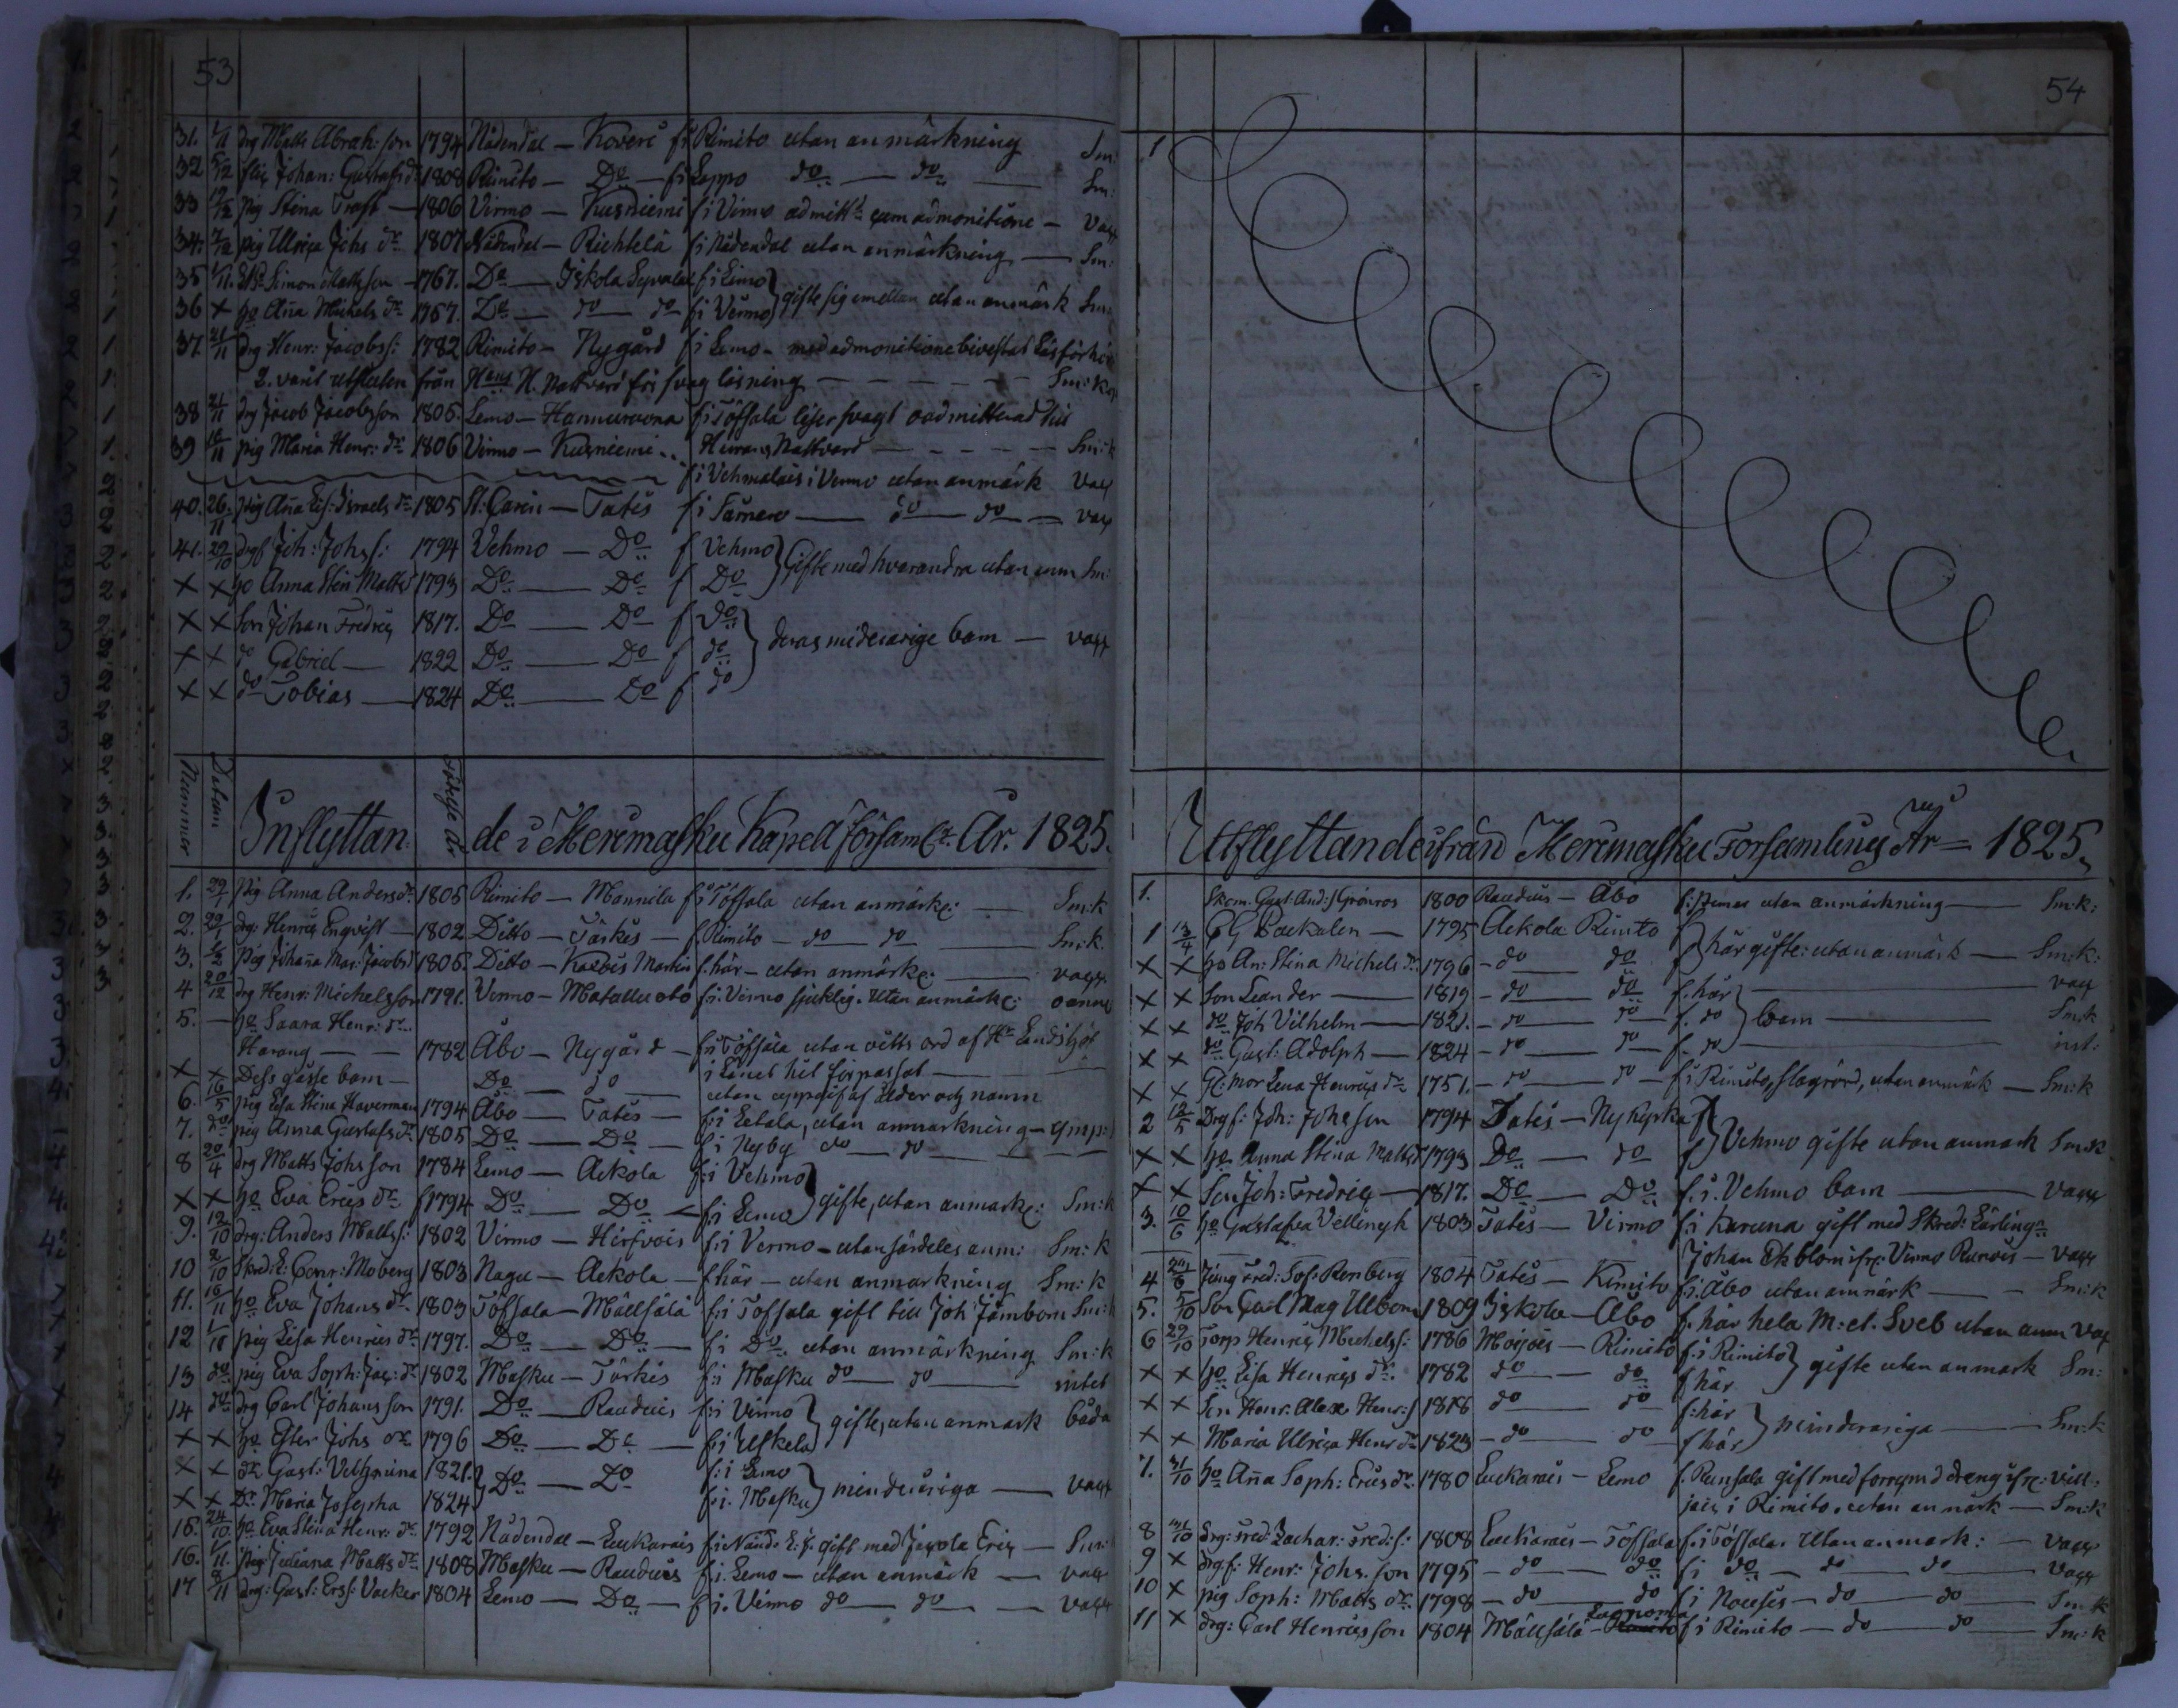 53
31. 1/11 drg Matts Abrah: son 1794 Nådendal — Koveri f i Rimito utan anmärkning Sm:
32 5/12 flic Johan: Gustafs dr 1808 Rimito — Do — f i Loppo do — do — Sm:
33 pig Stina Trast — 1806 Virmo — Kusniemi f i Virmo admitt: cum admonitione — vacc
34. pig Ulrica Johs dr 1807 Nådendal — Richtelä f i Nådendal utan anmärkning — Sm:
35 1/11. Simon Mattsson — 1767. Do — Iskola f i Lemo
36 x ho Aña Michels dr 1757. Do — do do f i Virmo } gifte sig emellan utan anmärk Sm:
37. 21/11 drg: Henr: Jacobss: 1782 Rimito — Nygård f i Lemo — med admonitione bivistat Läsförhör
2. varit utsluten från H. Nattvard för svag läsning — Sm: k
38 21/11 drg Jacob Jacobsson 1805. Lemo — Hannuroona f i Töfsala läser svagt oadmitterad till
39 pig Maria Henr: dr 1806 Virmo — Kusniemi .. Herrans Nattvard — Sm: k
f i Vehmalais i Virmo utan anmärk vacc
40. 26/11 pig Aña Lis: Israels dr 1805 St: Carin — Tatis f i — do — do — vacc
41. 29/10 drgf Joh: Johs s: 1794 Vehmo — Do f Vehmo
x x ho Anna Stin Matts d 1793 Do — Do f Do } Gifte med hvarandra utan anm Sm:
x x Son Johan Fredric 1817. Do — Do f do
x x do Gabriel — 1822 Do — Do f do } deras minderårige barn — vacc
x x do Tobias — 1824 Do — Do f do
Nummer Datum Födelse År
Inflyttande i Merimasku Kapell församl:r År. 1825.
1. pig Anna Anders dr 1805 Rimito — Mannila f i Töfsala utan anmärk: — Sm: k
2. drg: Henric Enqvist — 1802 Ditto — Tärkis — f. Rimito — do — do — Sm: k
3. Pig Johaña Mar: Jacobs d 1806. Ditto — Kaitis Martin f. här — utan anmärk: — vacc
4 20/12 drg Henr: Michelsson 1791. Virmo — Matalluoto f i Virmo sjuklig. utan anmärk:
5. — ho Saara Henr: dr
Harang — 1782 Åbo — Nygård — f i Töfsala utan vitts ord af
x x Dess gosse barn — Do — do i Länet hit förpassat —
6. 16/5 pig Lisa Stina Haverman 1794 Åbo — Tatis — utan uppgift af ålder och namn
7. do pig Anna Gustafs dr 1805 Do — Do — f i Letala, utan anmärkning —
8 20/4 drg Matts Johsson 1784 Lemo — Aekola f i Nyby do — do
x x ho Eva Erics dr 1794 Do — Do — f i Vehmo f i Lemo } gifte, utan anmärk: Sm: k
9. 12/10 drg: Anders Matts s: 1802 Virmo — Hirfvois f i Virmo — utan särdeles anm: Sm: k
10 2/10 Skrd: L: Conr: Moberg 1803 Nagu — Aekola — f här — utan anmärkning Sm: k
11. 16/11 ho Eva Johans dr 1803 Töfsala — Mällsälä f i Töfsala gift till Joh Sm: k
12 1/11 pig Lisa Henrics dr 1797. Do — Do — f i Do utan anmärkning Sm: k
13 do pig Eva Soph: Jac: dr 1802 Masku — Tärkis f i Masku do — do — intet
14 do drg Carl Johansson 1791. Do — Rauduis f i Virmo
x x ho Ester Johs dr 1796 Do — Do — f i Uskela } gifte, utan anmärk båda
x x dr Gust: Vilhelmina 1821. f i Lemo
x x Dr: Maria Josepha 1824 } Do — Do f i. Masku } minderåriga — vacc
15. 24/10 ho Eva Stina Henr: dr 1792 Nådendal — Luckarais f i Nånd: L: f: gift med Jacola Eric — Sm:
16. 1/11 pig: Juliana Matts dr 1808 Masku — Rauduis f i. Lemo — utan anmärk — vacc
17 8/11 drg: Gust: Ers s: Vacker 1804 Lemo — Do — f i. Virmo do — do — vacc
54
1
Utflyttande ifrån Merimasku Forsamling År = 1825.
1. Skom. Gust: And: s Grönros 1800 Rauduis — Åbo f: i utan anmärkning — Sm: k:
1 13/4 C G Backalen — 1795 Aekola Rimito f
x x ho An: Stina Michels dr 1796 — do — do f } här gifte: utan anmärk — Sm: k:
x x Son Leander — 1819 — do — do f. här — vacc
x x do Joh Vilhelm — 1821. — do — do f. do } barn — Sm: k
x x do Gust: Adolph — 1824 — do — do f. do — int:
x x Gl: mor Lena Henrics dr 1751. — do — do — f i Rimito, slagrörd, utan anmärk — Sm: k
2 12/5 Drg f: Joh: Johsson 1794 Tatis — Ny Kyrka f
x x ho Anna Stina Matts d 1793 Do — do f } Vehmo gifte utan anmärk Sm: k
x x Son Joh: Fredric — 1817. Do — Do f. i. Vehmo barn — vacc
3. 10/6 ho Gustafva Vellingh 1803 Tatis — Virmo f i Karuna gift med Skred: Lärling
Johan Ekblom i Virmo — vacc
4 Jung fred: Sof: Renberg 1804 Tatis — Kimito f i. Åbo utan anmärk — Sm: k
5. 5/10 Son Carl Mag Ulbom 1809 Iskola — Åbo f. här hela M: ct. Sveb utan anm vac
6 29/10 Torp Henric Michels s: 1786 Moijois — Rimito f i Rimito
x x ho Lisa Henrics dr 1782 do — do f här } gifte utan anmärk Sm:
x x Son Henr: Alex Henr: s 1818 do do f: här
x x Maria Ulrica Henr dr 1823 — do do f här } minderåriga — Sm: k
7. 31/10 ho Aña Soph: Erics dr 1780 Luckarais — Lemo f. Runsala gift med
i Rimito. utan anmärk — Sm: k
8 31/10 Drg: fred: Zachar: fred: s: 1808 Luckarais — Töfsala f. i Töfsala. Utan anmärk: — vacc
9 x drg f: Henr: Johs. son 1795 — do — do f i do — do — do — vacc
10 x pig Soph: Matts dr: 1798 — do do f i Nousis — do — do — Sm: k
11 x drg: Carl Henricsson 1804 Mällsälä — Luonoma f i Rimito — do — do — Sm: k